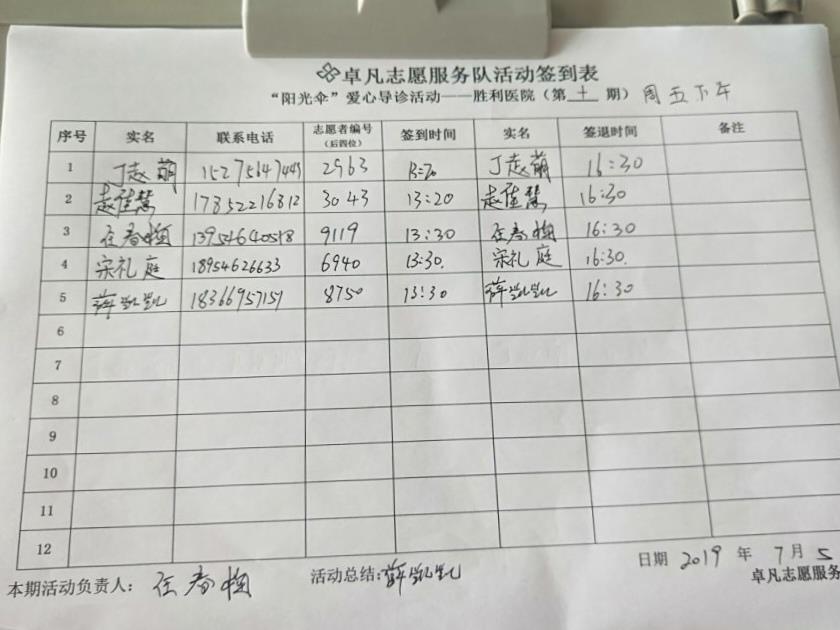 卓凡志愿服务队活动签到表
“阳光伞”爱心导诊活动——胜利医院（第 十 期）周五下午
序号 实名 联系电话 志愿者编号（后四位） 签到时间 实名 签退时间 备注
1 丁赵萌 15275647443 2963 13:20 丁赵萌 16:30
2 赵佳慧 17852216812 3043 13:20 赵佳慧 16:30
3 任春梅 13954640518 9119 13:30 任春梅 16:30
4 宋礼庭 18954626633 6940 13:30. 宋礼庭 16:30.
5 薛凯凯 18366957157 8750 13:30 薛凯凯 16:30
6
7
8
9
10
11
12
日期 2019 年 7 月 5
本期活动负责人： 任春梅 活动总结:薛凯凯 卓凡志愿服务